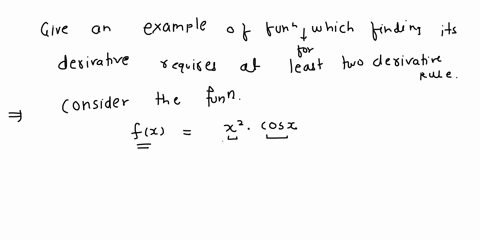 Give an example of funⁿ which finding its
for
derivative requires at least two derivative
rule.
⇒ Consider the funⁿ.
f(x) = x². cosx